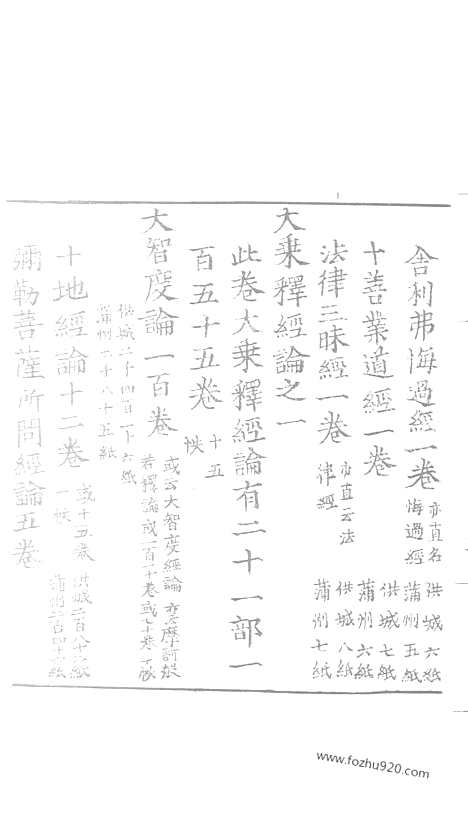 舎利弗悔過經一卷 亦直名悔過經 洪城六紙 蒲州五紙
十善業道經一卷 供城七紙 蒲州六紙
法律三昧經一卷 亦直云法律經 供城八紙 蒲州七紙
大乗釋經論之一
此卷大乗釋經論有二十一部一
百五十五卷 十五帙
大智度論一百卷 或云大智度經論 亦摩訶般若釋論 或一百一十卷 或七十卷
供城二千四百一十六紙
蒲州二千八十五紙
十地經論十二卷 或十五卷 一帙
彌勒菩薩所問經論五卷
www.fozhu920.com